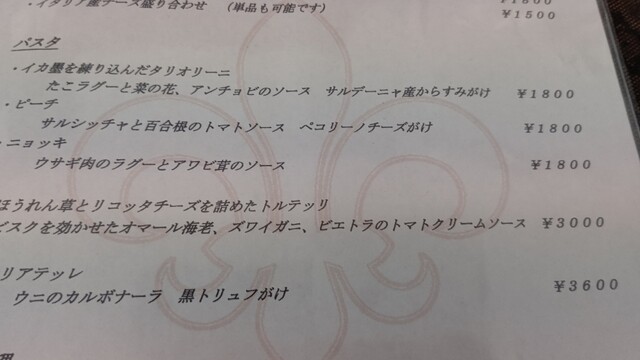 ・イタリア産チーズ盛り合わせ （単品も可能です） ￥1800
￥1500
パスタ
・イカ墨を練り込んだタリオリーニ
たこラグーと菜の花、アンチョビのソース サルデーニャ産からすみがけ ￥1800
・ピーチ
サルシッチャと百合根のトマトソース ペコリーノチーズがけ ￥1800
・ニョッキ
ウサギ肉のラグーとアワビ茸のソース ￥1800
ほうれん草とリコッタチーズを詰めたトルテッリ
ビスクを効かせたオマール海老、ズワイガニ、ビエトラのトマトクリームソース ￥3000
リアテッレ
ウニのカルボナーラ 黒トリュフがけ ￥3600